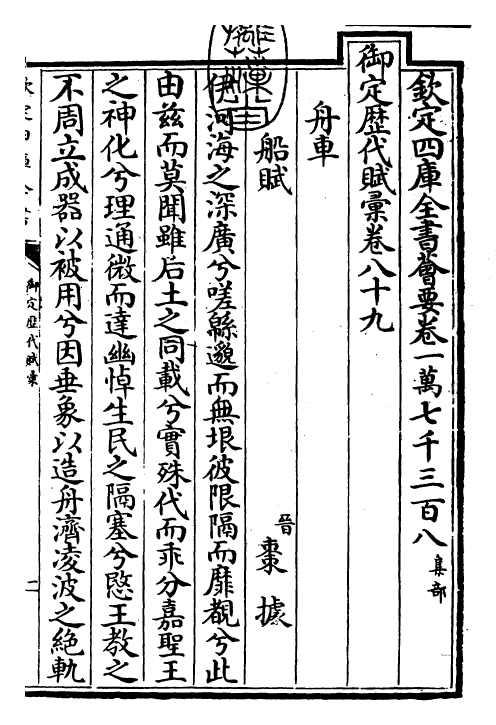 欽定四庫全書薈要卷一萬七千三百八 集部
御定歴代賦彙卷八十九
舟車
船賦 晉 棗據
伊河海之深廣兮嗟緜邈而無垠彼限隔而靡覩兮此
由兹而莫聞雖后土之同載兮實殊代而乖分嘉聖王
之神化兮理通微而達幽悼生民之隔塞兮愍王教之
不周立成器以被用兮因垂象以造舟濟凌波之絶軌
御定歴代賦彙